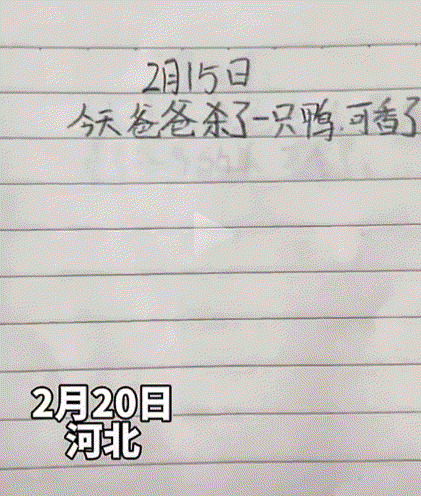 2月15日
今天爸爸杀了一只鸭.可香了
2月20日
河北